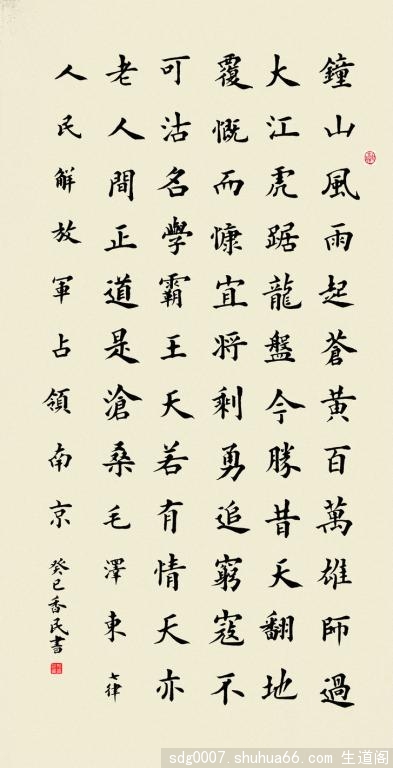 鐘山風雨起蒼黃百萬雄師過
大江虎踞龍盤今勝昔天翻地
覆慨而慷宜將剩勇追窮寇不
可沽名學霸王天若有情天亦
老人間正道是滄桑毛澤東七律
人民解放軍占領南京癸巳香民書
sdg0007.shuhua66.com 生道阁